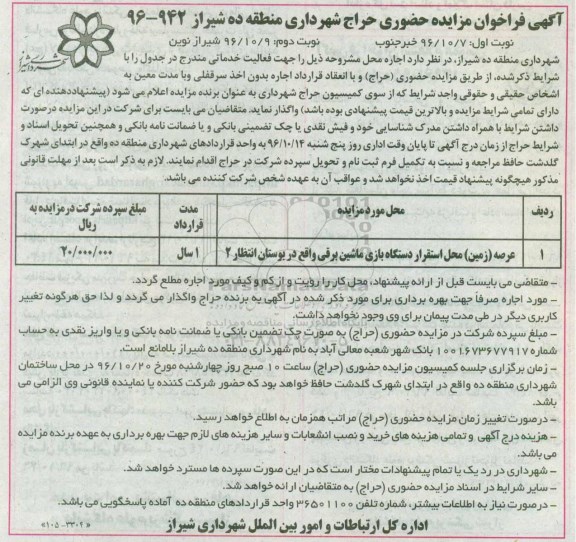 آگهی فراخوان مزایده حضوری حراج شهرداری منطقه ده شیراز ۹۴۲-۹۶
نوبت اول: ۹۶/۱۰/۷ خبرجنوب نوبت دوم: ۹۶/۱۰/۹ شیراز نوین
شهرداری منطقه ده شیراز، در نظر دارد اجاره محل مشروحه ذیل را جهت فعالیت خدماتی مندرج در جدول را با
شرایط ذکرشده، از طریق مزایده حضوری (حراج) و با انعقاد قرارداد اجاره بدون اخذ سرقفلی وبا مدت معین به
اشخاص حقیقی و حقوقی واجد شرایط که از سوی کمیسیون حراج شهرداری به عنوان برنده مزایده اعلام می شود (پیشنهاددهنده ای که
دارای تمامی شرایط مزایده و بالاترین قیمت پیشنهادی بوده باشد) واگذار نماید. متقاضیان می بایست برای شرکت در این مزایده درصورت
داشتن شرایط با همراه داشتن مدرک شناسایی خود و فیش نقدی یا چک تضمینی بانکی و یا ضمانت نامه بانکی و همچنین تحویل اسناد و
شرایط حراج از زمان درج آگهی تا پایان وقت اداری روز پنج شنبه ۹۶/۱۰/۱۴ به واحد قراردادهای شهرداری منطقه ده واقع در ابتدای شهرک
گلدشت حافظ مراجعه و نسبت به تکمیل فرم ثبت نام و تحویل سپرده شرکت در حراج اقدام نمایند. لازم به ذکر است بعد از مهلت قانونی
مذکور هیچگونه پیشنهاد قیمت اخذ نخواهد شد و عواقب آن به عهده شخص شرکت کننده می باشد.
ردیف محل مورد مزایده مدت قرارداد مبلغ سپرده شرکت در مزایده به ریال
۱ عرصه (زمین) محل استقرار دستگاه بازی ماشین برقی واقع در بوستان انتظار ۲ ۱ سال ۲۰/۰۰۰/۰۰۰
- متقاضی می بایست قبل از ارائه پیشنهاد، محل کار را رویت و از کم و کیف مورد اجاره مطلع گردد.
- مورد اجاره صرفاً جهت بهره برداری برای مورد ذکر شده در آگهی به برنده حراج واگذار می گردد و لذا حق هرگونه تغییر
کاربری دیگر در طی مدت پیمان برای وی وجود نخواهد داشت.
- مبلغ سپرده شرکت در مزایده حضوری (حراج) به صورت چک تضمین بانکی یا ضمانت نامه بانکی و یا واریز نقدی به حساب
شماره ۱۰۰۱۶۷۳۶۷۷۹۱۷ بانک شهر شعبه معالی آباد به نام شهرداری منطقه ده شیراز بلامانع است.
- زمان برگزاری جلسه کمیسیون مزایده حضوری (حراج) ساعت ۱۰ صبح روز چهارشنبه مورخ ۹۶/۱۰/۲۰ در محل ساختمان
شهرداری منطقه ده واقع در ابتدای شهرک گلدشت حافظ خواهد بود که حضور شرکت کننده یا نماینده قانونی وی الزامی می
باشد.
- درصورت تغییر زمان مزایده حضوری (حراج) مراتب همزمان به اطلاع خواهد رسید.
- هزینه درج آگهی و تمامی هزینه های خرید و نصب انشعابات و سایر هزینه های لازم جهت بهره برداری به عهده برنده مزایده
می باشد.
- شهرداری در رد یک یا تمام پیشنهادات مختار است که در این صورت سپرده ها مسترد خواهد شد.
- سایر شرایط در اسناد مزایده حضوری (حراج) به متقاضیان ارائه خواهد شد.
- درصورت نیاز به اطلاعات بیشتر، شماره تلفن ۳۶۵۰۱۱۰۰ واحد قراردادهای منطقه ده آماده پاسخگویی می باشد.
اداره کل ارتباطات و امور بین الملل شهرداری شیراز
«۱۰۵-۳۳۰۲»